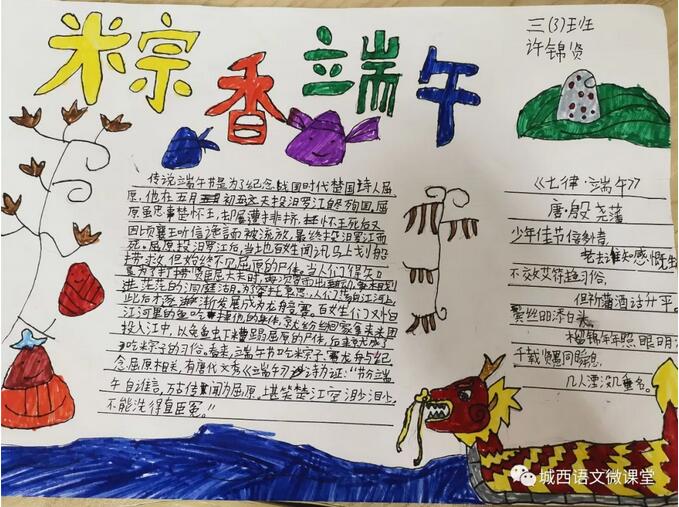 粽香端午
三(3)班
许锦贤
传说端午节是为了纪念战国时代楚国诗人屈
原,他在五月初五这天投汨罗江自殉国,屈
原虽忠事楚怀王,却屡遭排挤,怀王死后又
因顷襄王听信谗言而被流放,最终投汨罗江而
死。屈原投汨罗江后,当地百姓闻讯马上划船
捞救,但始终不见屈原的尸体。
茫茫的洞庭湖。为寄托哀思,人们
此后才逐渐发展成为龙舟竞赛。百姓们又怕
江河里的鱼吃掉他的身体,就纷纷回家拿来米团
投入江中,以免鱼虾糟蹋屈原的尸体,后来就成了
吃粽子的习俗。看来,端午节吃粽子、赛龙舟与纪
念屈原相关,有唐代文秀《端午》诗为证:“节分端
午自谁言,万古传闻为屈原。堪笑楚江空渺渺,
不能洗得直臣冤。”
《七律·端午》
唐·殷尧藩
少年佳节倍多情,
老去谁知感慨生
不效艾符趋习俗,
但祈蒲酒话升平。
鬓丝日添白头,
榴锦年年照眼明
千载贤愚同瞬息,
几人湮没几垂名。
城西语文微课堂